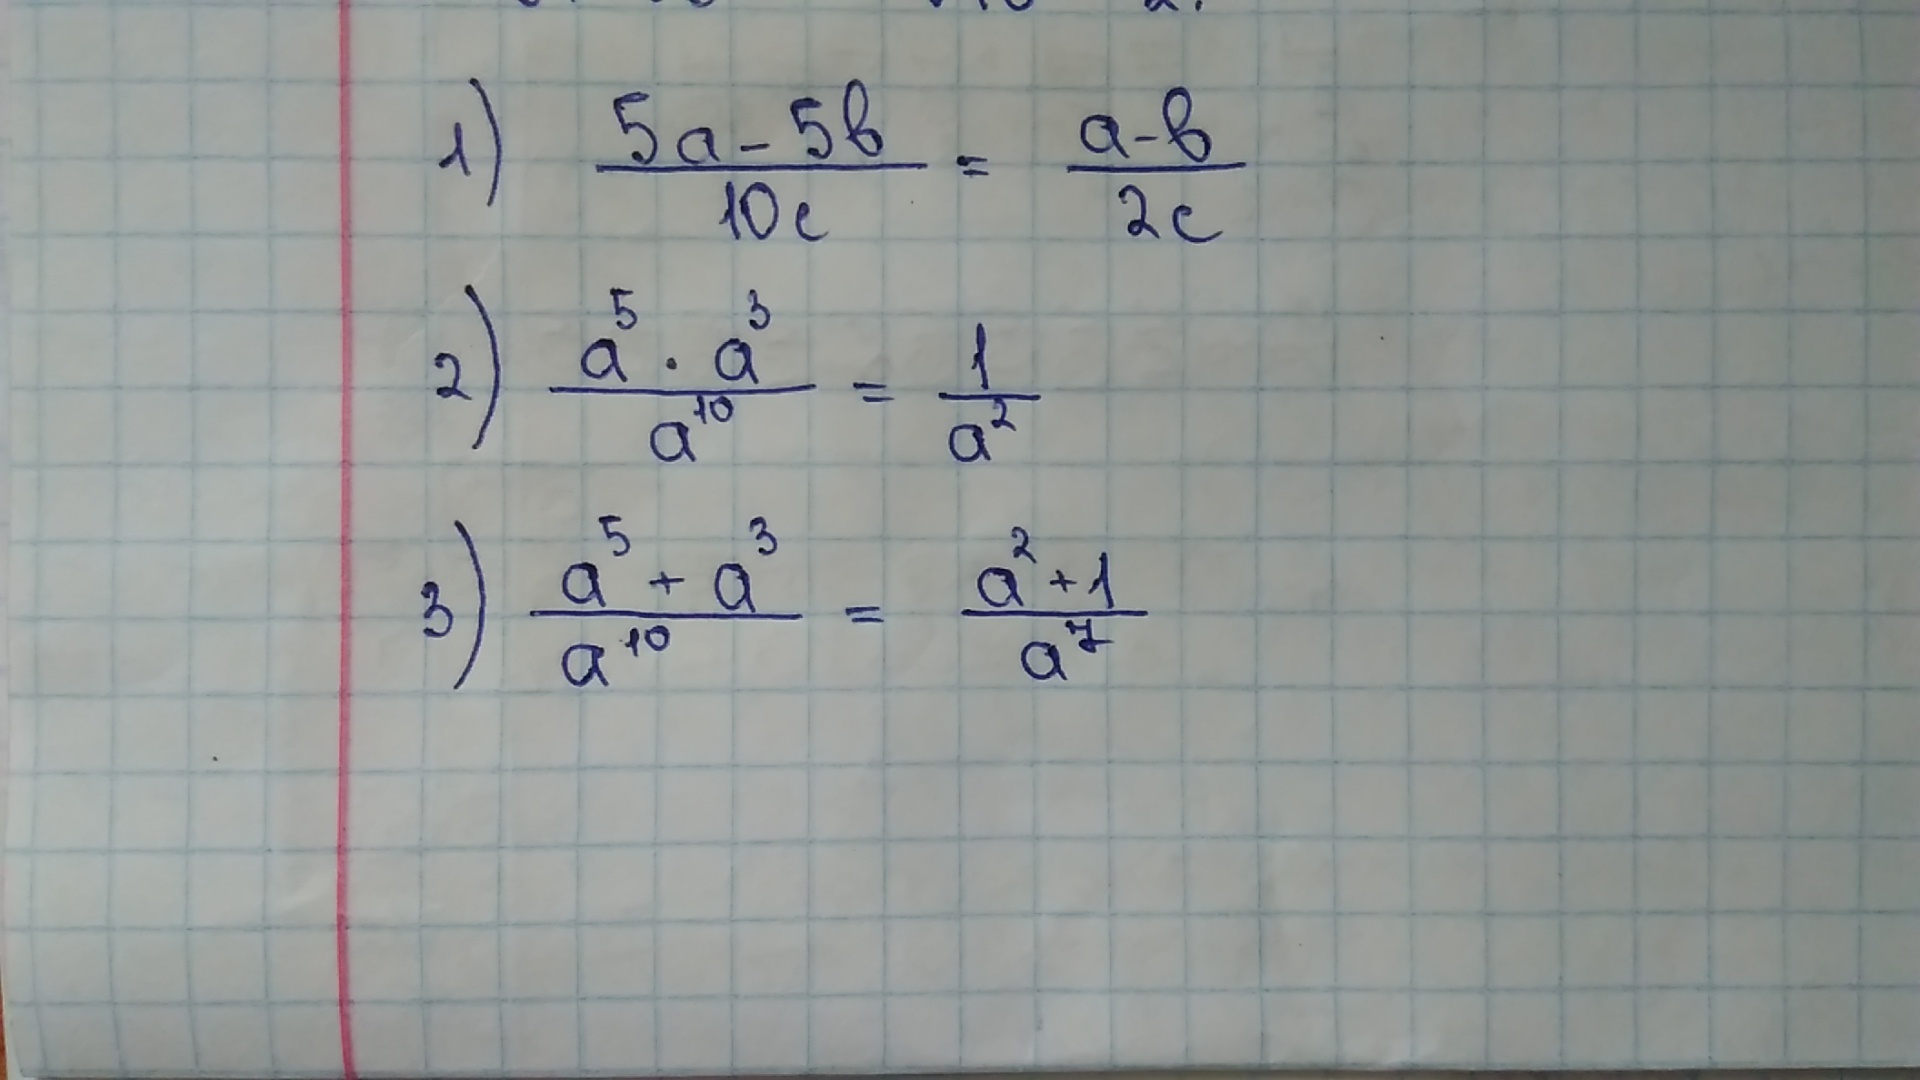 1) (5a - 5b)/(10c) = (a-b)/(2c)
2) (a⁵ · a³)/a¹⁰ = 1/a²
3) (a⁵ + a³)/a¹⁰ = (a² + 1)/a⁷